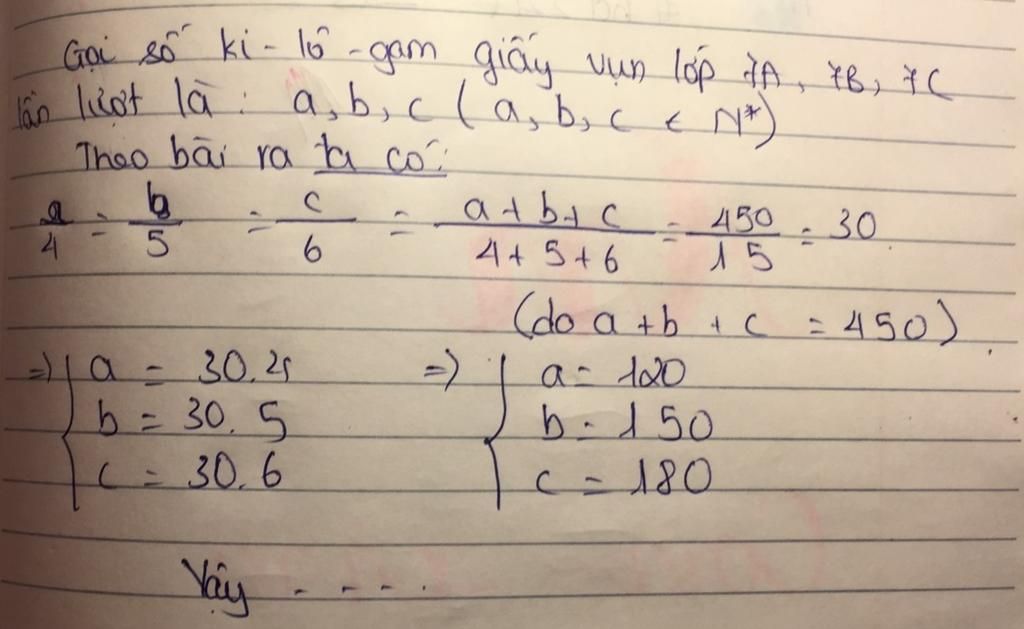 Gọi số ki-lô-gam giấy vụn lớp 7A, 7B, 7C
lần lượt là: a, b, c ( a, b, c ∈ N*)
Theo bài ra ta có:
a/4 = b/5 = c/6 = a+b+c/4+5+6 = 450/15 = 30
(do a+b+c = 450).
=> { a = 30.4 => { a = 120
b = 30.5 b = 150
c = 30.6 c = 180
Vậy - - - .